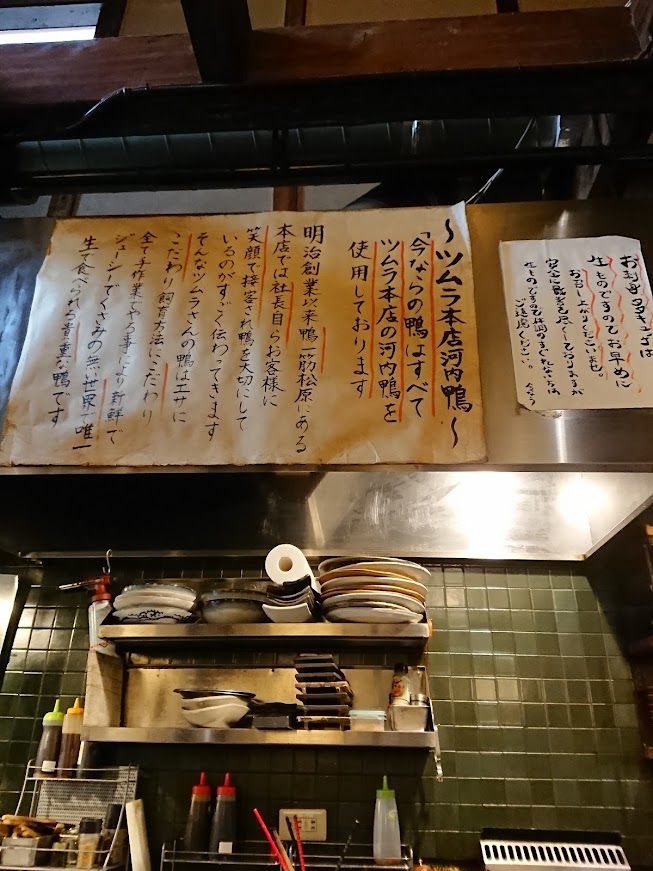 ～ツムラ本店河内鴨～
「今ならの鴨はすべて
ツムラ本店の河内鴨を
使用しております
明治創業以来鴨一筋松原にある
本店では社長自らお客様に
笑顔で接客され鴨を大切にして
いるのがすごく伝わってきます
そんなツムラさんの鴨はエサに
こだわり飼育方法にこだわり
全て手作業でやる事により新鮮で
ジューシーでくさみの無い世界一唯一
生で食べられる貴重な鴨です
生ものですのでお早めに
お召し上がりくださいませ。
ご遠慮ください。